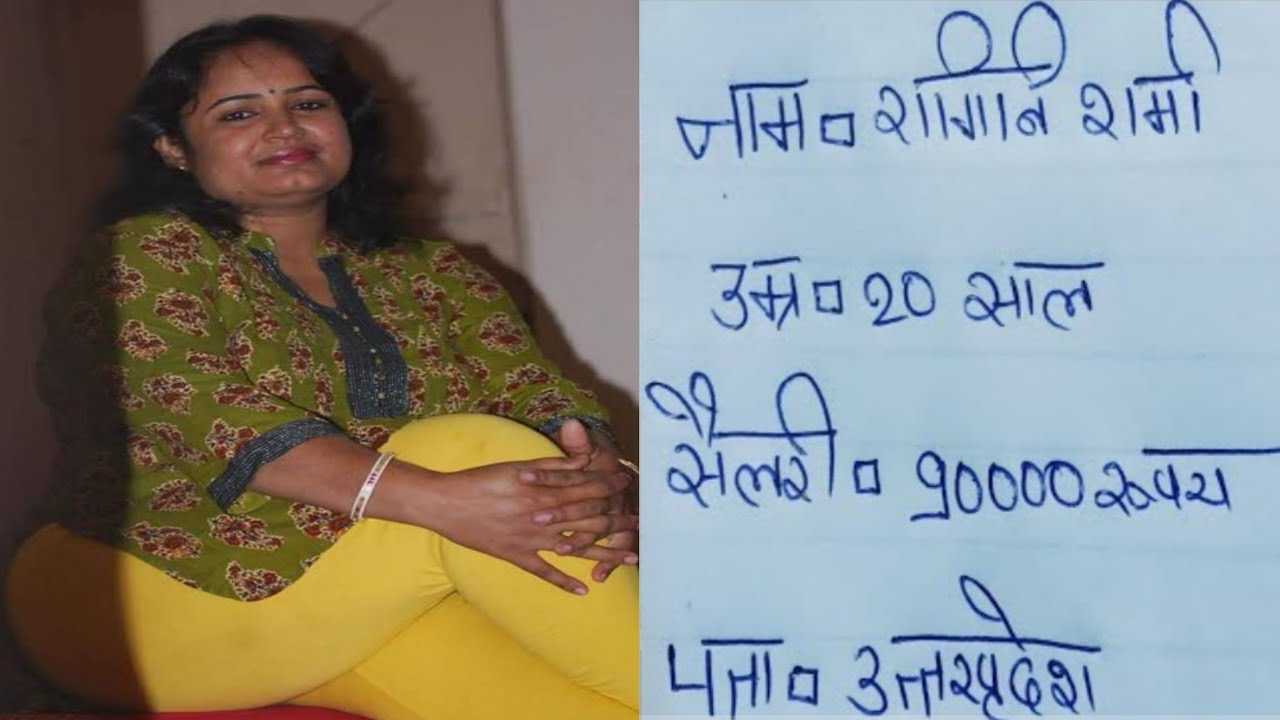 नाम॰ रागिनि शर्मा
उम्र॰ २० साल
सैलरी॰ १०००० रूपय
पता॰ उत्तरप्रदेश